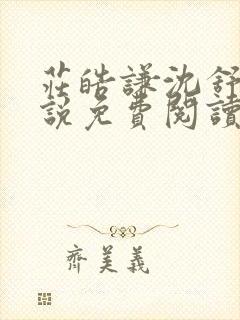 莊皓謙沈舒
說免費閱讀
齊美義